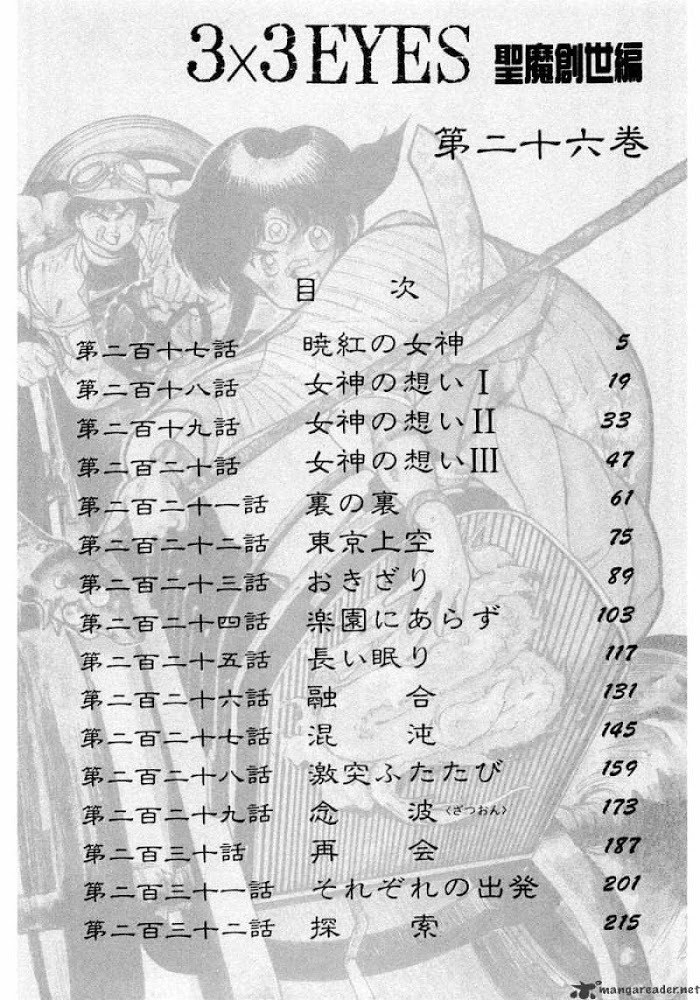 3×3 EYES 聖魔創世編
第二十六巻
目次
第二百十七話 暁紅の女神 5
第二百十八話 女神の想いⅠ 19
第二百十九話 女神の想いⅡ 33
第二百二十話 女神の想いⅢ 47
第二百二十一話 裏の裏 61
第二百二十二話 東京上空 75
第二百二十三話 おきざり 89
第二百二十四話 楽園にあらず 103
第二百二十五話 長い眠り 117
第二百二十六話 融合 131
第二百二十七話 混沌 145
第二百二十八話 激突ふたたび 159
第二百二十九話 念波〈ざつおん〉 173
第二百三十話 再会 187
第二百三十一話 それぞれの出発 201
第二百三十二話 探索 215
mangareader.net